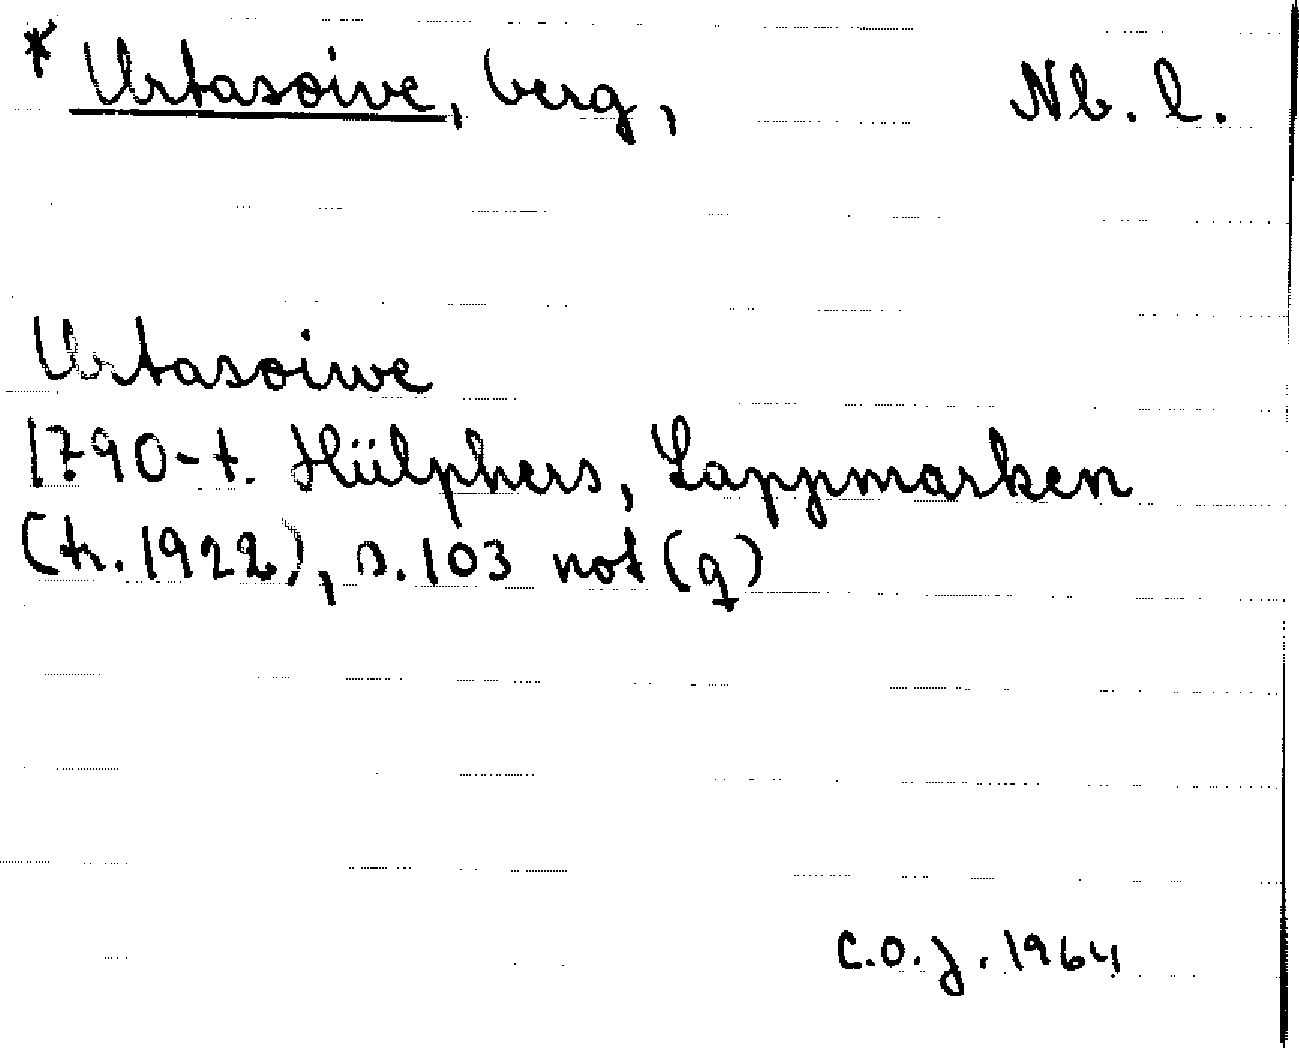 * Urtasoive, berg, Nb. l.
Urtasoiwe
1790-t. Hülphers, Lappmarken
(tr. 1922), s. 103 not (q)
C.O.J. 1964